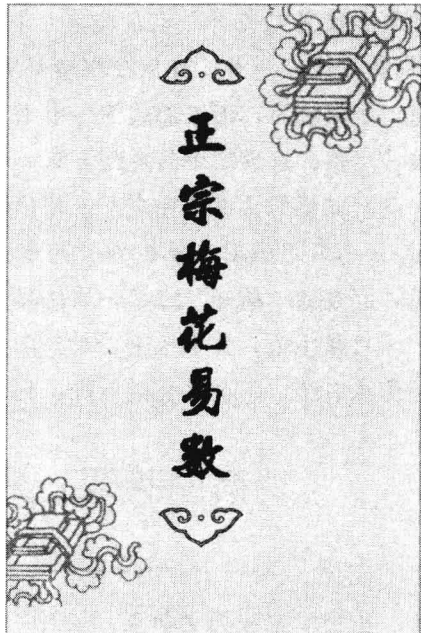 正宗梅花易数